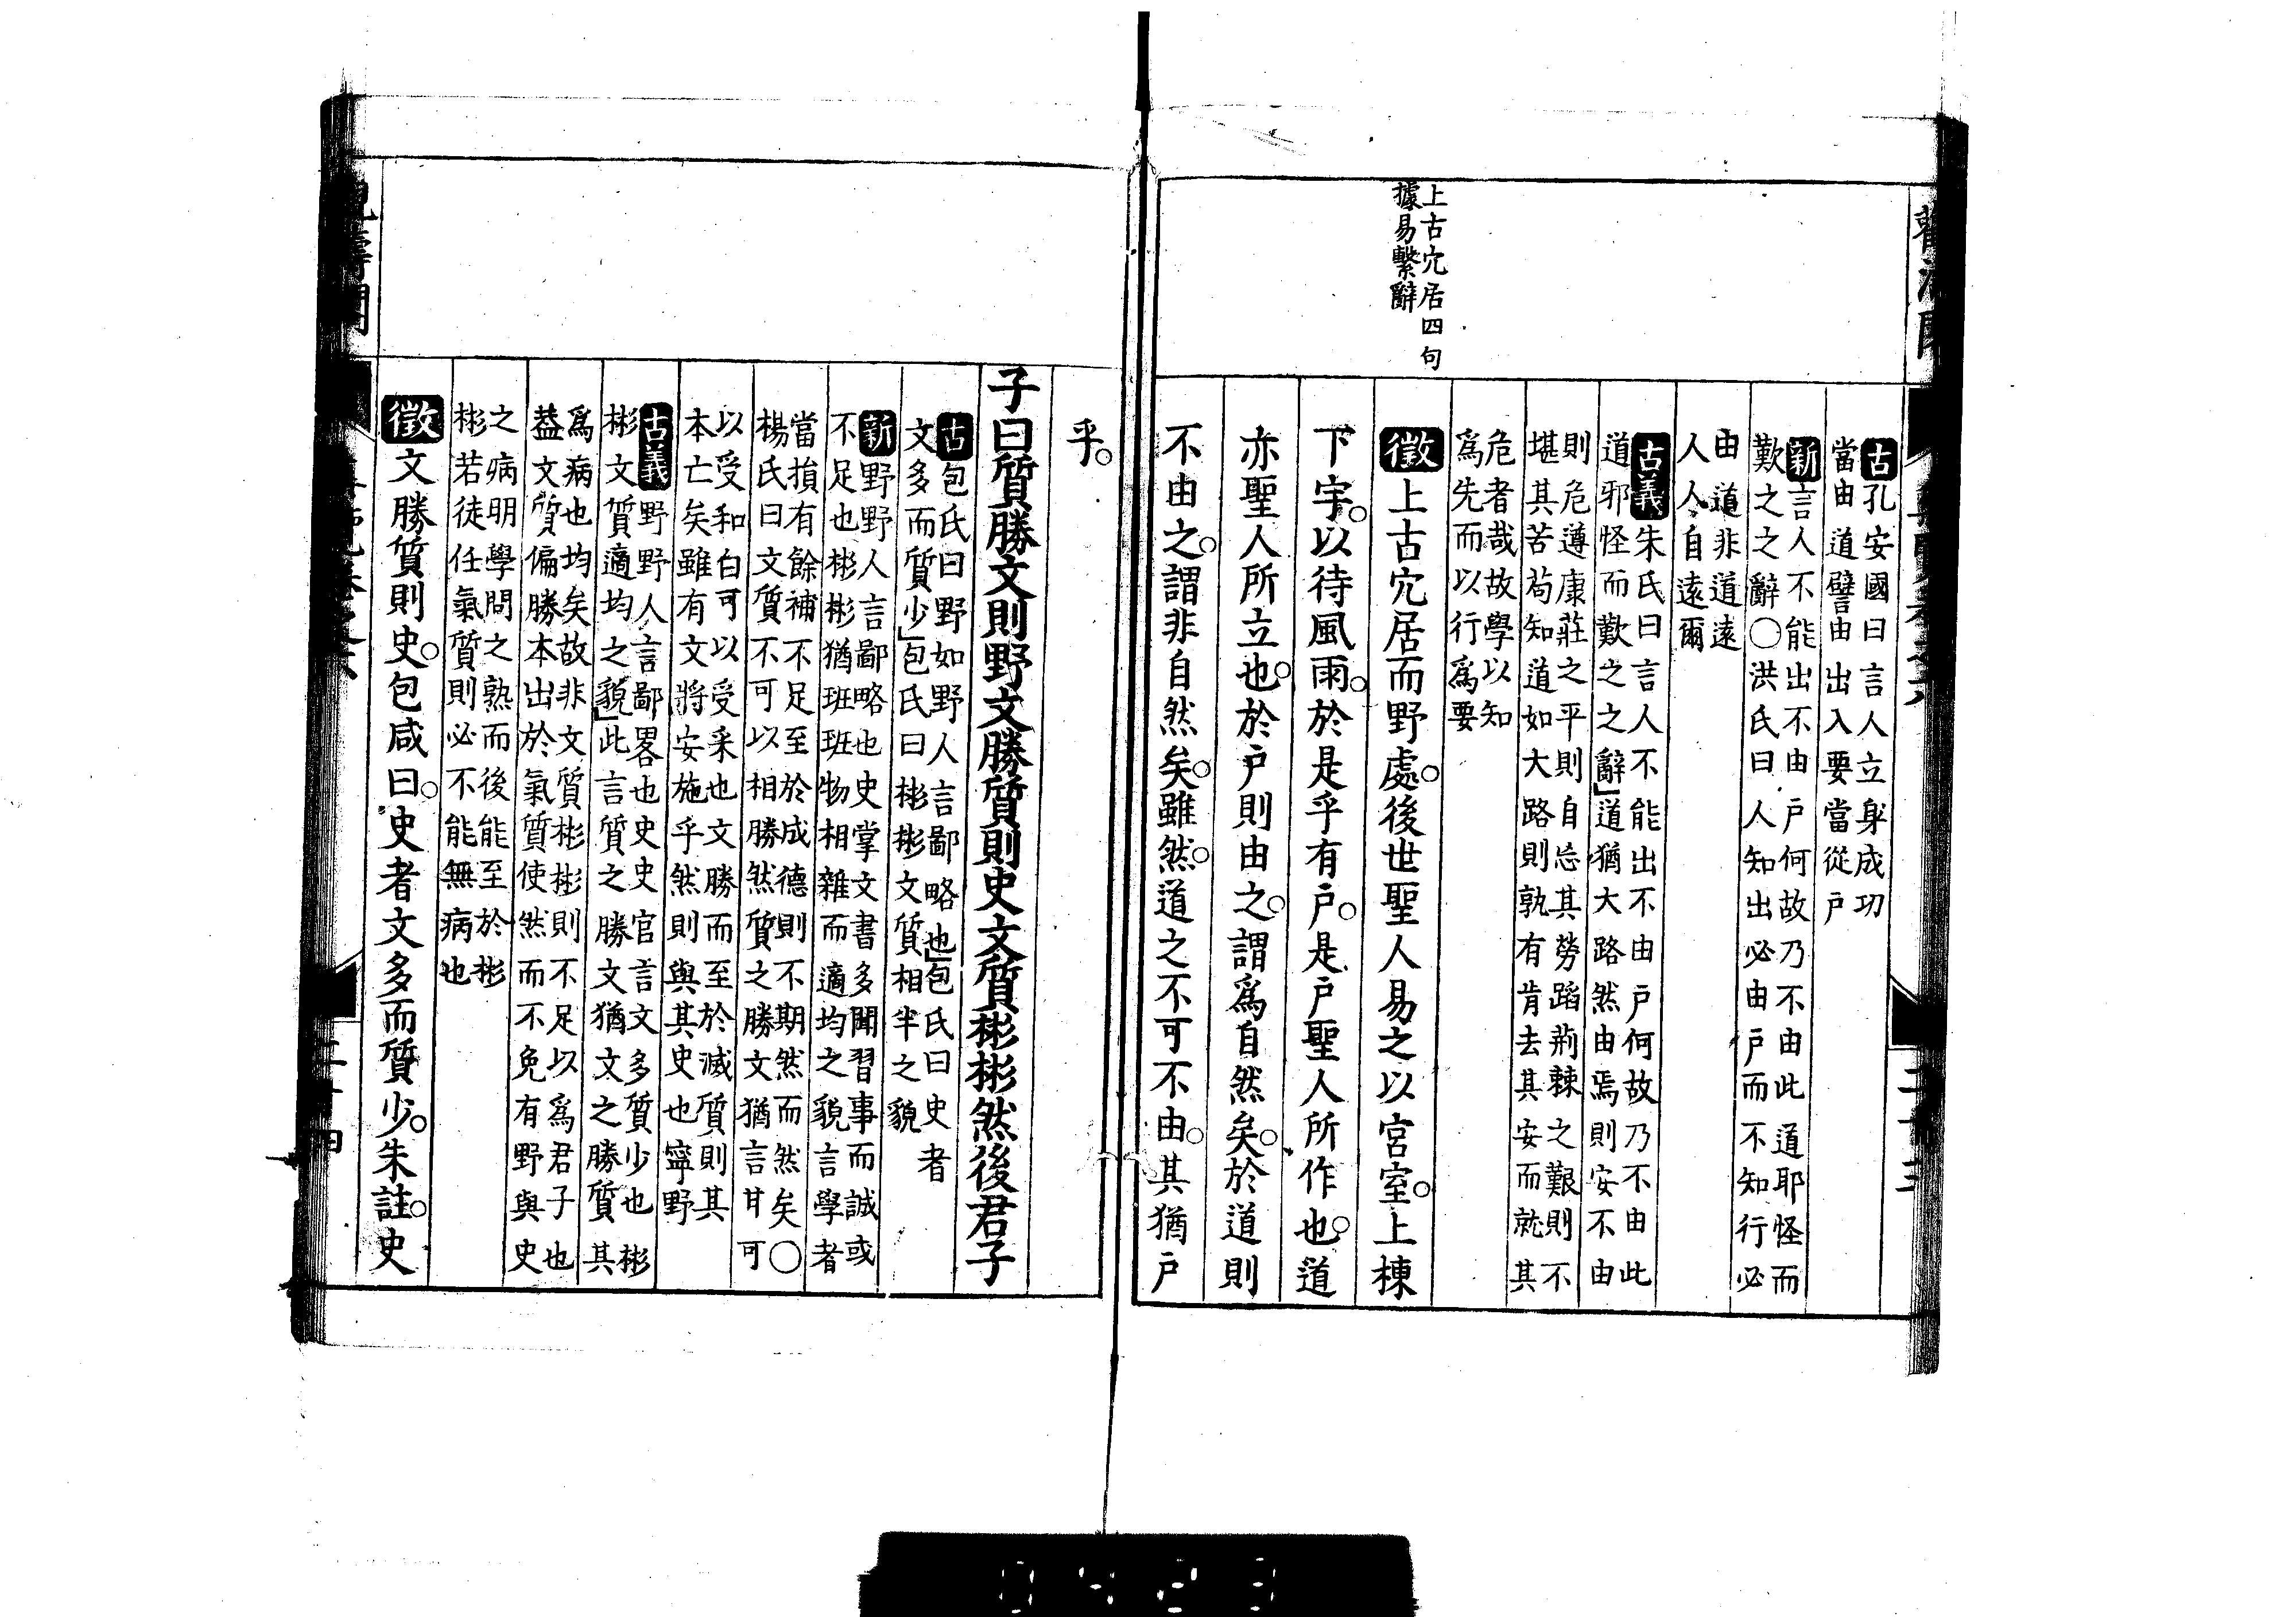 上古穴居四句
據易繫辭
古 孔安國曰言人立身成功
當由道譬由出入要當從戶
新 言人不能出不由戶何故乃不由此道耶怪而
歎之之辭○洪氏曰人知出必由戶而不知行必
由道非道遠
人人自遠爾
古義 朱氏曰言人不能出不由戶何故乃不由此
道邪怪而歎之之辭」道猶大路然由焉則安不由
則危遵康莊之平則自忘其勞蹈荊棘之艱則不
堪其苦苟知道如大路則孰有肯去其安而就其
危者哉故學以知
爲先而以行爲要
徵 上古穴居而野處。後世聖人易之以宮室。上棟
下宇。以待風雨。於是乎有戶。是戶聖人所作也。道
亦聖人所立也。於戶則由之。謂爲自然矣。於道則
不由之。謂非自然矣。雖然。道之不可不由。其猶戶
乎。
子曰質勝文則野文勝質則史文質彬彬然後君子
古 包氏曰野如野人言鄙略也」包氏曰史者
文多而質少」包氏曰彬彬文質相半之貌
新 野野人言鄙略也史掌文書多聞習事而誠或
不足也彬彬猶班班物相雜而適均之貌言學者
當損有餘補不足至於成德則不期然而然矣○
楊氏曰文質不可以相勝然質之勝文猶言甘可
以受和白可以受采也文勝而至於滅質則其
本亡矣雖有文將安施乎然則與其史也寧野
古義 野野人言鄙畧也史史官言文多質少也彬
彬文質適均之貌」此言質之勝文猶文之勝質其
爲病也均矣故非文質彬彬則不足以爲君子也
葢文質偏勝本出於氣質使然而不免有野與史
之病明學問之熟而後能至於彬
彬若徒任氣質則必不能無病也
徵 文勝質則史。包咸曰。史者文多而質少。朱註。史